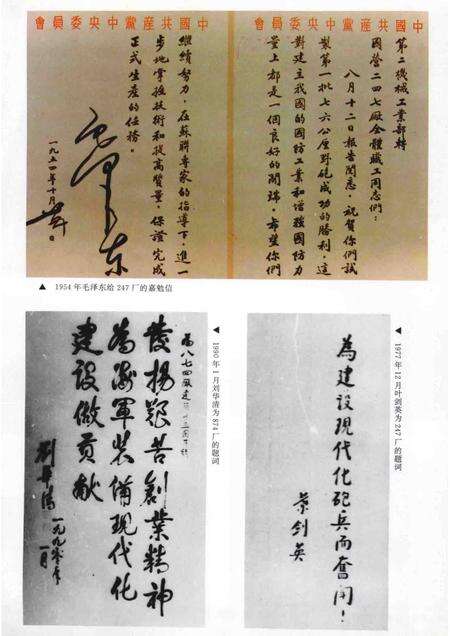 中國共產黨中央委員會
第二機械工業部轉
國營二四七廠全體職工同志們：
八月十二日報告閱悉。祝賀你們試
製第一批七六公厘野砲成功的勝利，這
對建立我國的國防工業和增強國防力
量上都是一個良好的開端。希望你們
中國共產黨中央委員會
繼續努力，在蘇聯專家的指導下，進一
步地掌握技術和提高質量，保證完成
正式生產的任務。
毛泽东
一九五四年十月
日
▲ 1954年毛泽东给247厂的嘉勉信
▲ 1977年12月叶剑英为247厂的题词
為建设现代化砲兵而奋鬥！
葉剑英
▲ 1990年1月刘华清为874厂的题词
為八七四廠建
發揚艱苦創業精神
為海軍装備現代化
建設做貢献
劉華清
一九九零年
一月